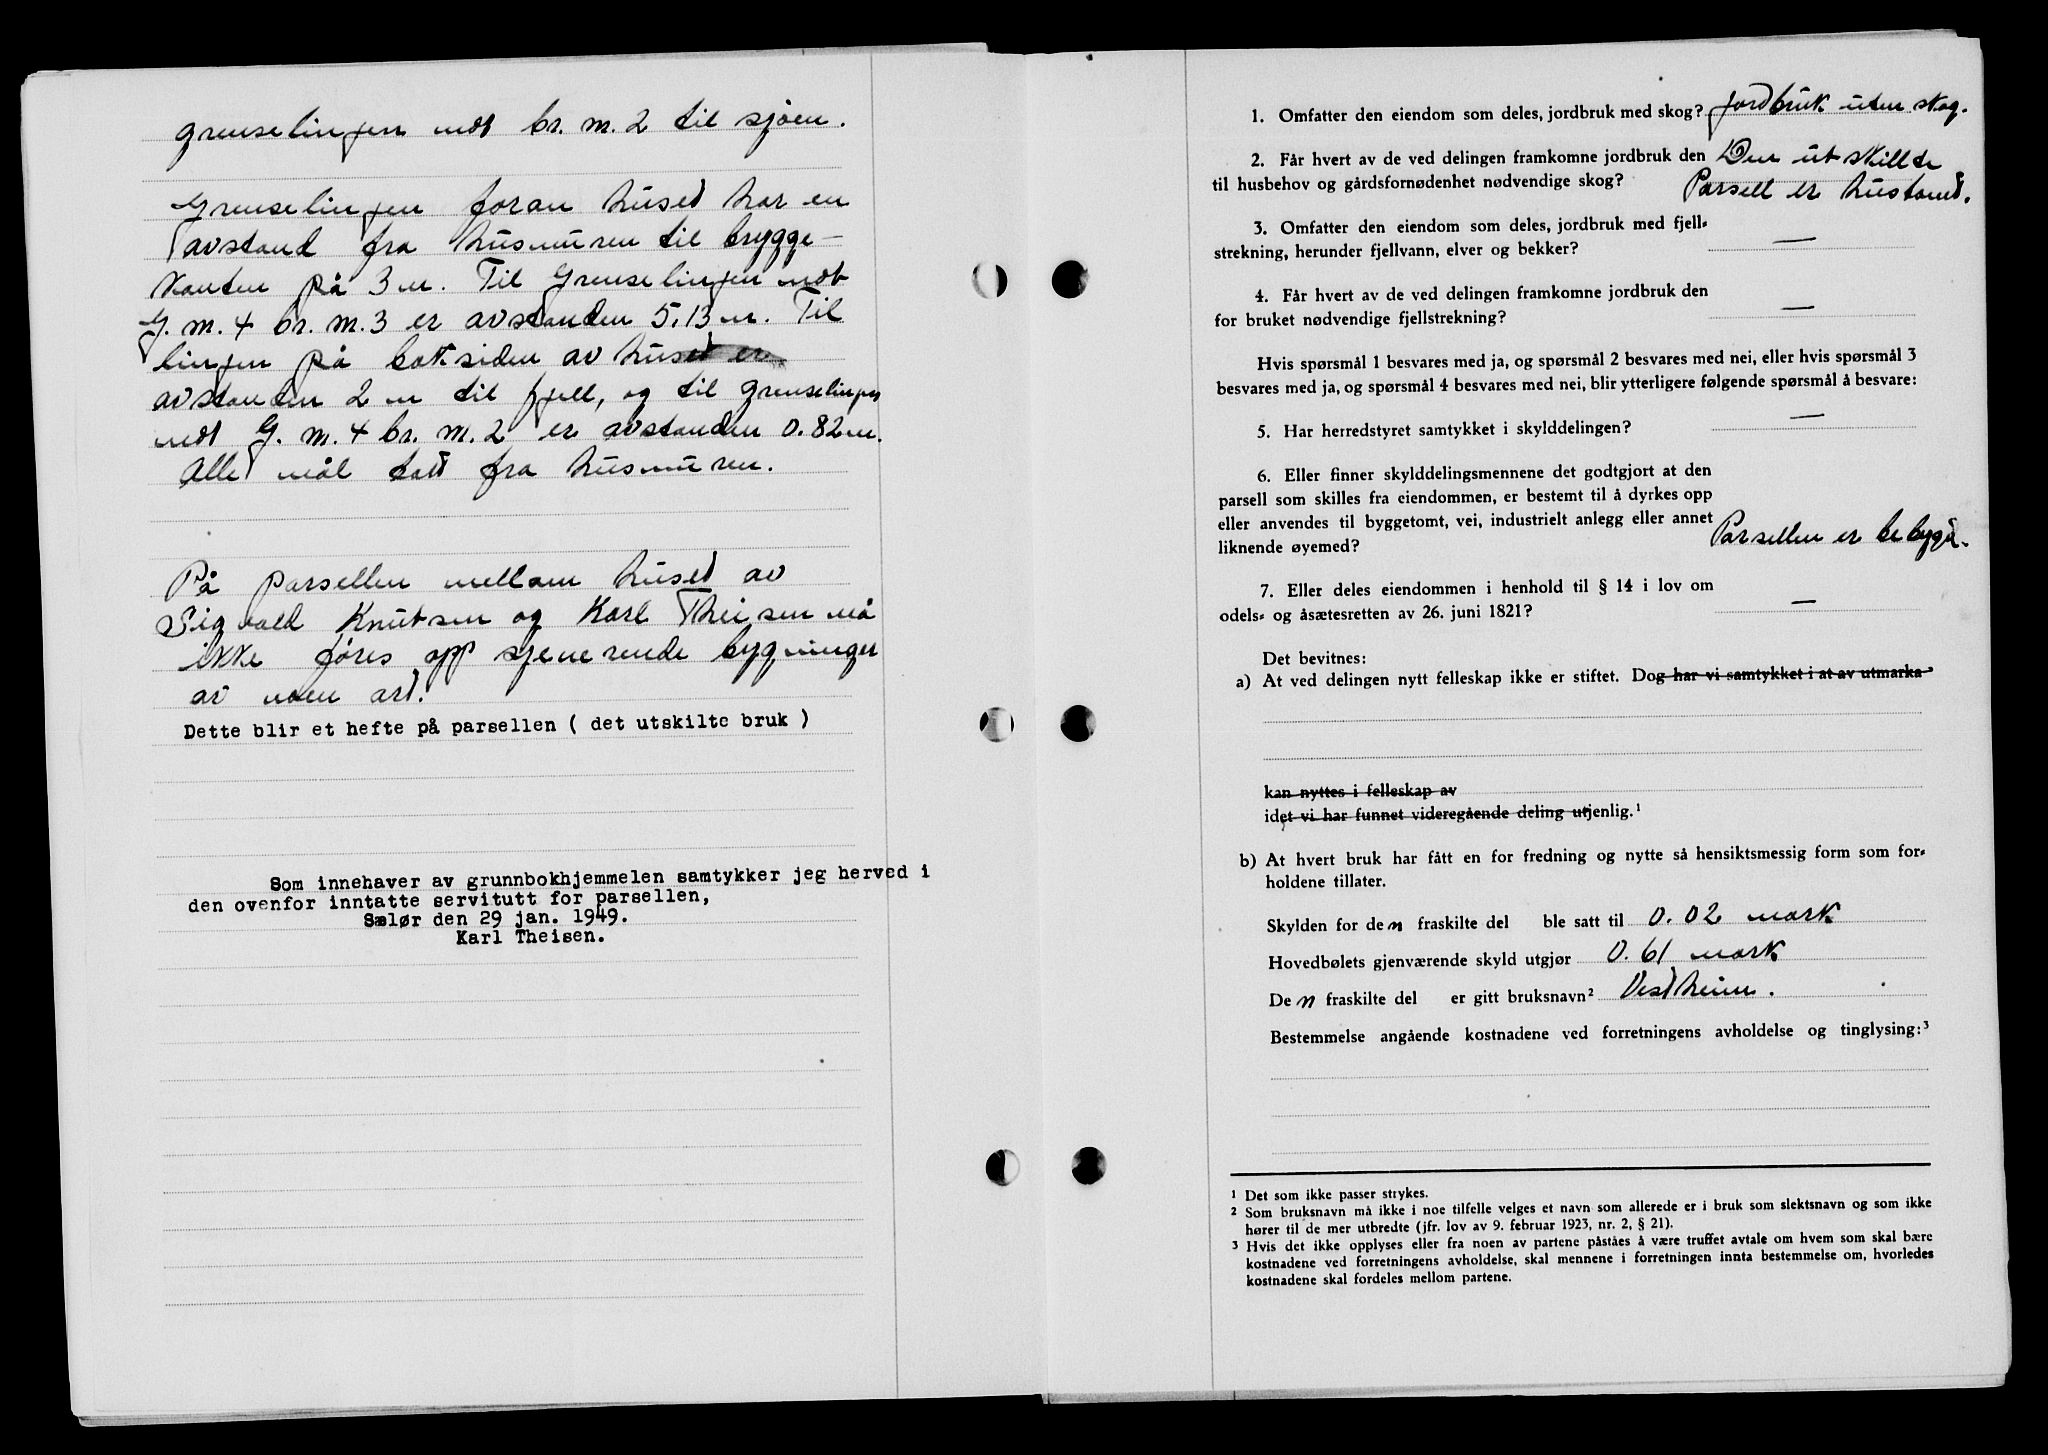 grenselinjen mot br. m. 2 til sjøen.
Grenselinjen foran huset har en
avstand fra husmuren til brygge-
kanten på 3 m. Til Grenselinjen mot
G. m. 4 br. m. 3 er avstanden 5.13 m. Til
linjen på bak siden av huset er
avstanden 2 m til fjell, og til grenselinjen
mot G. m. 4 br. m. 2 er avstanden 0.82 m.
Alle mål tatt fra husmuren.
På parsellen mellom huset av
Sigvald Knutsen og Karl Theisen må
ikke føres opp sjenerende bygninger
av noen art.
Dette blir et hefte på parsellen ( det utskilte bruk )
Som innehaver av grunnbokhjemmelen samtykker jeg herved i
den ovenfor inntatte servitutt for parsellen,
Sælør den 29 jan. 1949.
Karl Theisen.
1. Omfatter den eiendom som deles, jordbruk med skog? Jordbruk uten skog.
2. Får hvert av de ved delingen framkomne jordbruk den Den utskillte
til husbehov og gårdsfornødenhet nødvendige skog? Parsell er hustomt.
3. Omfatter den eiendom som deles, jordbruk med fjell-
strekning, herunder fjellvann, elver og bekker? —
4. Får hvert av de ved delingen framkomne jordbruk den
for bruket nødvendige fjellstrekning? —
Hvis spørsmål 1 besvares med ja, og spørsmål 2 besvares med nei, eller hvis spørsmål 3
besvares med ja, og spørsmål 4 besvares med nei, blir ytterligere følgende spørsmål å besvare:
5. Har herredstyret samtykket i skylddelingen? —
6. Eller finner skylddelingsmennene det godtgjort at den
parsell som skilles fra eiendommen, er bestemt til å dyrkes opp
eller anvendes til byggetomt, vei, industrielt anlegg eller annet
liknende øyemed? Parsellen er bebygd.
7. Eller deles eiendommen i henhold til § 14 i lov om
odels- og åsætesretten av 26. juni 1821? —
Det bevitnes:
a) At ved delingen nytt felleskap ikke er stiftet. Dog har vi samtykket i at av utmarka ²
kan nyttes i felleskap av
idet vi har funnet videregående deling utjenlig.¹
b) At hvert bruk har fått en for fredning og nytte så hensiktsmessig form som for-
holdene tillater.
Skylden for den fraskilte del ble satt til 0.02 mark
Hovedbølets gjenværende skyld utgjør 0.61 mark
Den fraskilte del er gitt bruksnavn² Vestheim.
Bestemmelse angående kostnadene ved forretningens avholdelse og tinglysing:³
¹ Det som ikke passer strykes.
² Som bruksnavn må ikke i noe tilfelle velges et navn som allerede er i bruk som slektsnavn og som ikke
hører til de mer utbredte (jfr. lov av 9. februar 1923, nr. 2, § 21).
³ Hvis det ikke opplyses eller fra noen av partene påståes å være truffet avtale om hvem som skal bære
kostnadene ved forretningens avholdelse, skal mennene i forretningen innta bestemmelse om, hvorledes
kostnadene skal fordeles mellom partene.